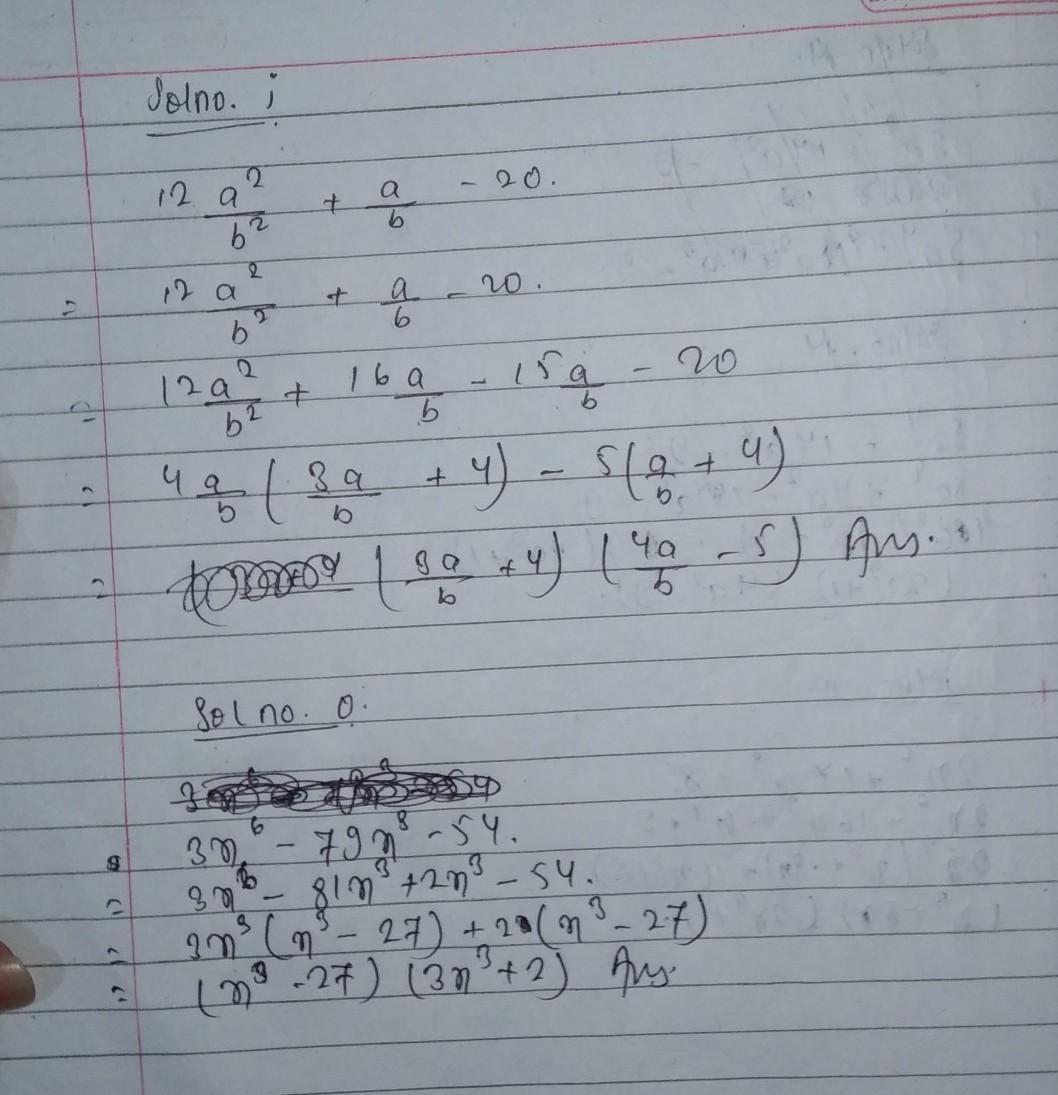 Solno. i
12 a²/b² + a/b - 20.
= 12 a²/b² + a/b - 20.
= 12a²/b² + 16a/b - 15a/b - 20
= 4a/b (3a/b + 4) - 5(a/b + 4)
= (3a/b + 4) (4a/b - 5) Ans.
Sol no. 0.
3x⁶ - 79x³ - 54.
= 3x⁶ - 81x³ + 2x³ - 54.
= 3x³ (x³ - 27) + 2(x³ - 27)
= (x³ - 27) (3x³ + 2) Ans.